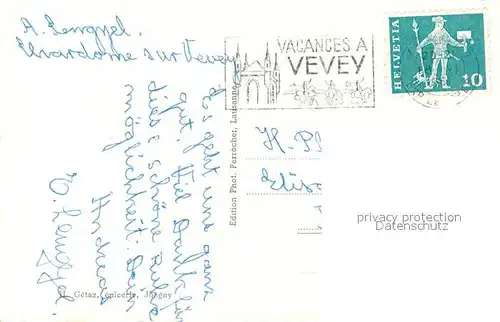 A. Lengyel.
sur Vevey
Es geht uns ganz
gut. Viel Dank für
diese schöne Ruhe
möglichkeit. Dein
Andreas
Lengyel.
VACANCES A
VEVEY
HELVETIA
10
Edition Phot. Perrochet, Lausanne
H. Pf
Elisa
privacy protection
Datenschutz
H. Gétaz, épicerie, Jongny